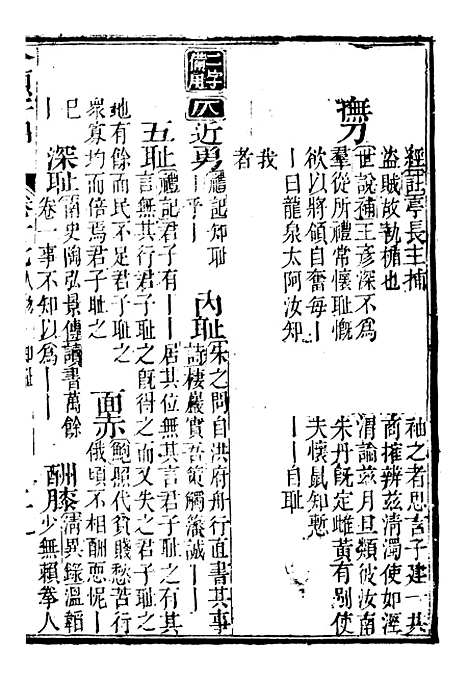 經註亭長主捕
盜賊故執楯也
撫刀
世說補王彥深不為
羣從所禮常懷耻慨
欲以將領自奮每丨
丨曰龍泉太阿汝知
我
者
之者思吾子建一共
商搉辨茲清濁使如涇
渭論茲月旦類彼汝南
朱丹旣定雌黃有別使
夫懷鼠知慙
丨丨自耻
二字備用 八
近勇 禮記知耻
丨乎丨
內耻 朱之問自洪府舟行直書其事
詩棲巖實吾策觸藩誠丨丨
五耻 禮記君子有丨丨居其位無其言君子耻之有其
言無其行君子耻之旣得之而又失之君子耻之
地有餘而民不足君子耻之
眾寡均而倍焉君子耻之
面赤 鮑照代貧賤愁苦行
俄頃不相酬恧怩丨
丨已
深耻 南史陶弘景傳讀書萬餘
卷一事不知以為丨丨
酬膝 清異錄溫韜
少無賴拳人